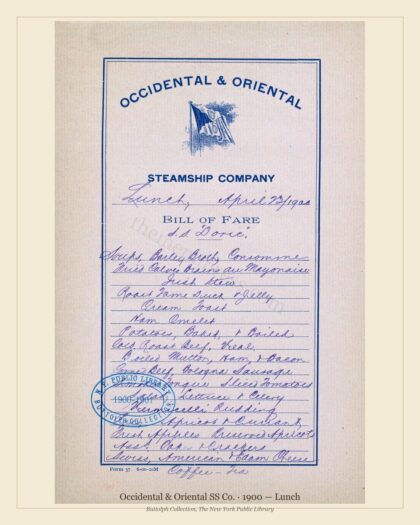 OCCIDENTAL & ORIENTAL
STEAMSHIP COMPANY
Lunch, April 23/1900
BILL OF FARE
S.S. "Doric"
Soups, Barley Broth, Consomme
Fried Calves Brains au Mayonaise
Irish Stew
Roast Tame Duck & Jelly
Cream Toast
Ham Omelet
Potatoes, Baked, & Boiled
Cold Roast Beef, Veal,
Boiled Mutton, Ham, & Bacon
Corned Beef, Bologna Sausage
Tongue Sliced Tomatoes
Lettuce & Celery
Vermicelli Pudding
Apricot & Currant
Fresh Apples Preserved Apricots
Asst. Cakes & Crackers
Swiss, American & Edam Cheese
Coffee - Tea
Form 37
N.Y. PUBLIC LIBRARY
1900-1901
BUTTOLPH COLLECTION
Occidental & Oriental SS Co. · 1900 — Lunch
Buttolph Collection, The New York Public Library